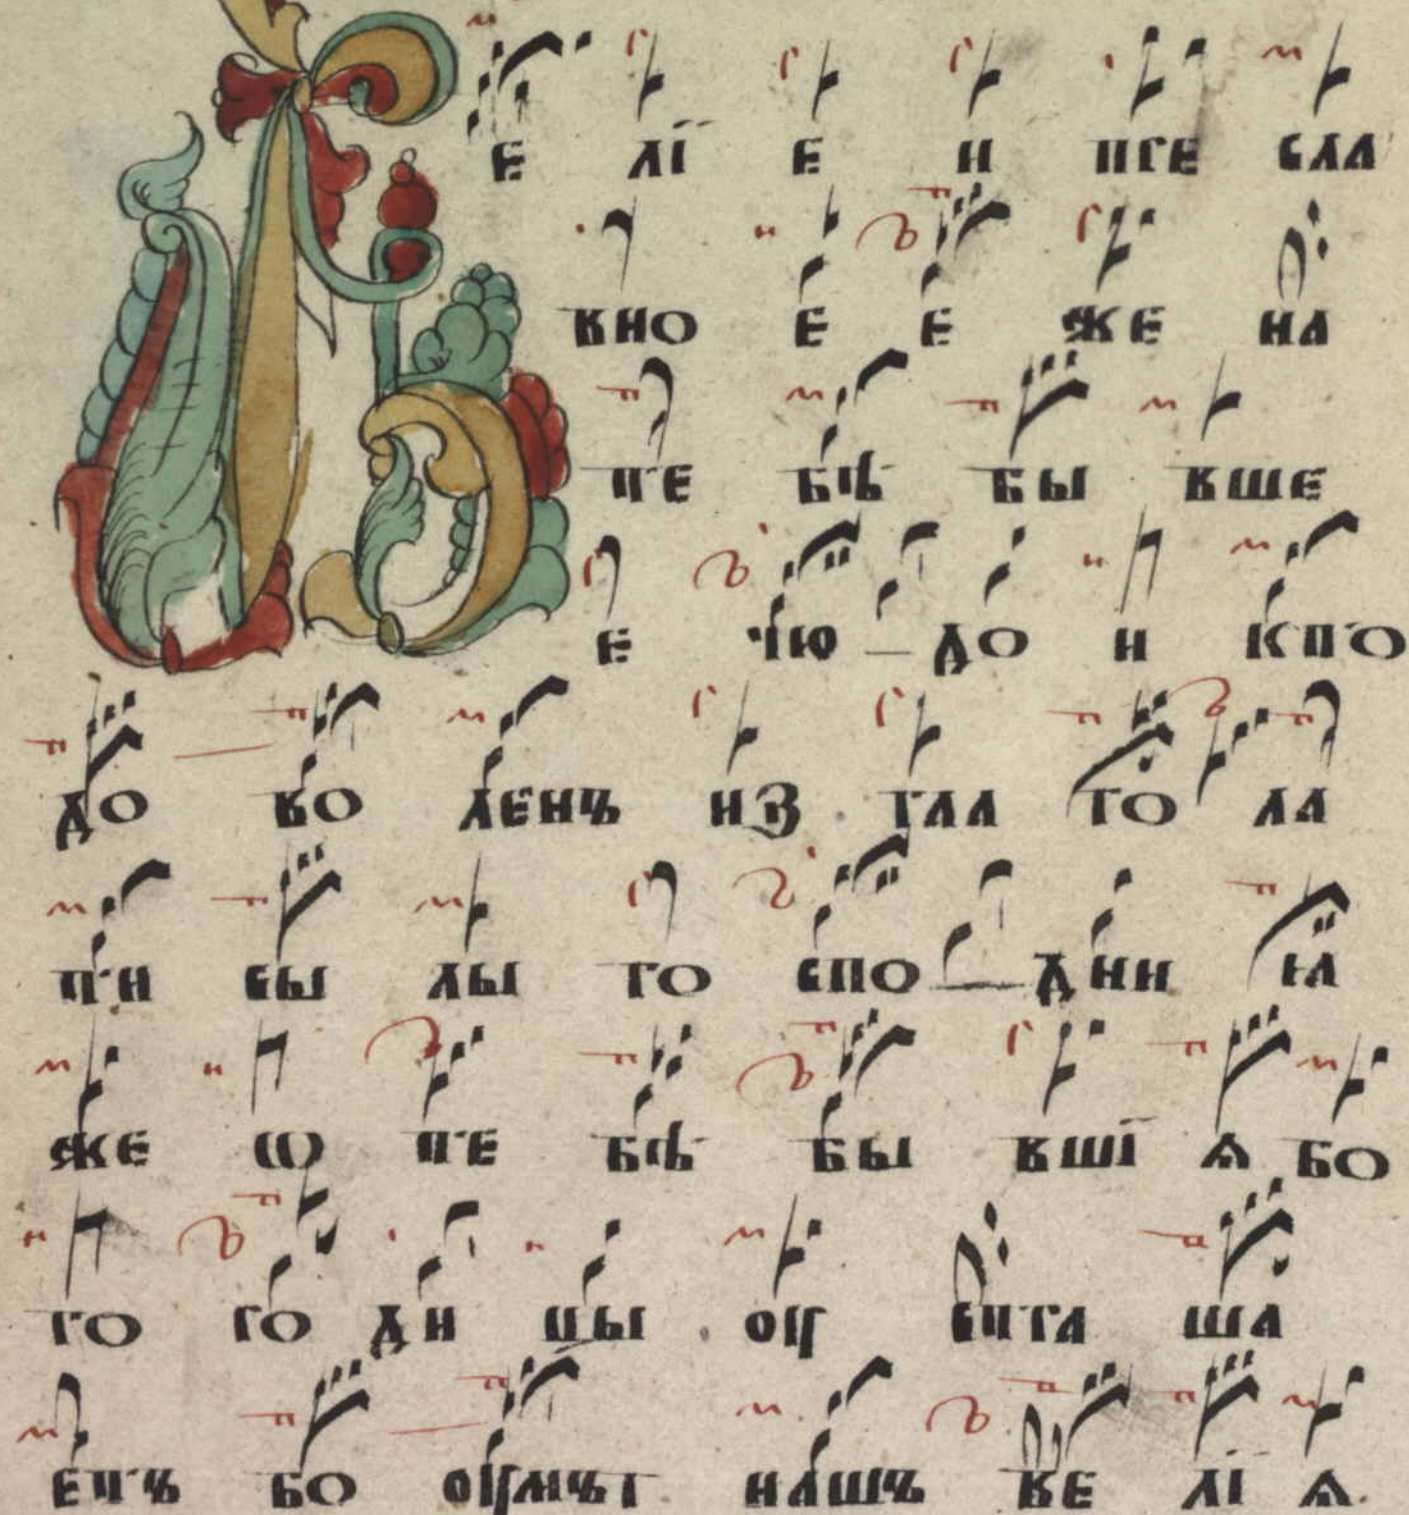 В е лі е и пре сла
вно е е же на
не бѣ бы вше
е чю до и кпо
до во ленъ из гла го ла
ни сы лы го спо дни ꙗ
же ѡ не бѣ бы вші ѧ бо
го ро ди цы оу кра ша
енъ бо оумъ нашъ ве лі ѧ.